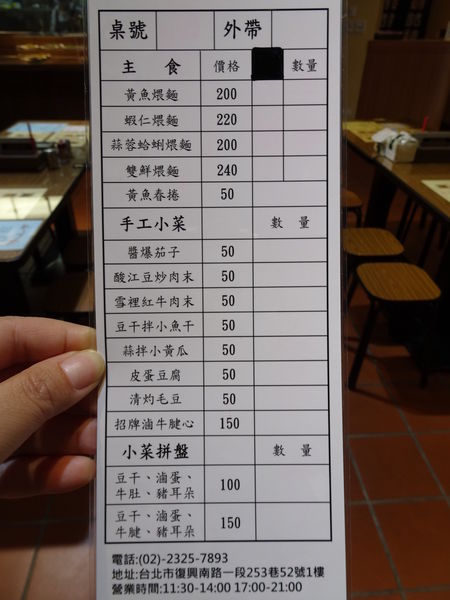 桌號 外帶
主 食 價格 數量
黃魚煨麵 200
蝦仁煨麵 220
蒜蓉蛤蜊煨麵 200
雙鮮煨麵 240
黃魚春捲 50
手工小菜 數 量
醬爆茄子 50
酸江豆炒肉末 50
雪裡紅牛肉末 50
豆干拌小魚干 50
蒜拌小黃瓜 50
皮蛋豆腐 50
清灼毛豆 50
招牌滷牛腱心 150
小菜拼盤 數 量
豆干、滷蛋、
牛肚、豬耳朵 100
豆干、滷蛋、
牛腱、豬耳朵 150
電話:(02)-2325-7893
地址:台北市復興南路一段253巷52號1樓
營業時間:11:30-14:00 17:00-21:00